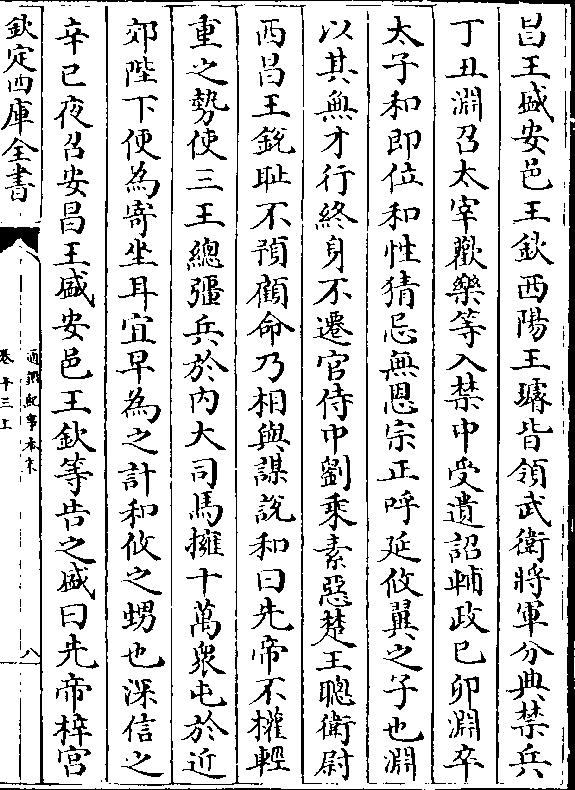 昌王盛安邑王欽西陽王璿皆領武衛將軍分典禁兵
丁丑淵召太宰歡樂等入禁中受遺詔輔政己卯淵卒
太子和即位和性猜忌無恩宗正呼延攸翼之子也淵
以其無才行終身不遷官侍中劉乘素惡楚王聰衛尉
西昌王銳恥不預顧命乃相與謀說和曰先帝不權輕
重之勢使三王總彊兵於內大司馬擁十萬衆屯於近
郊陛下便為寄坐耳宜早為之計和攸之甥也深信之
辛巳夜召安昌王盛安邑王欽等告之盛曰先帝梓宫
欽定四庫全書
通鑑紀事本末
卷十三上
八